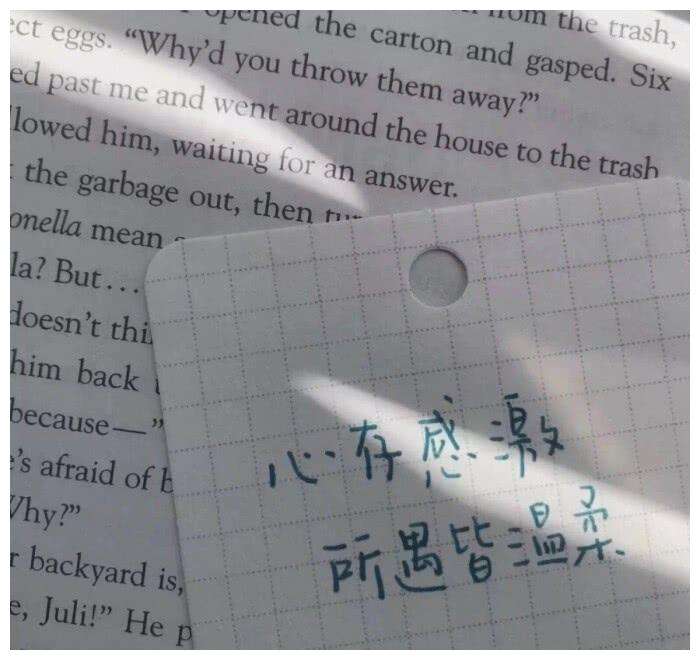 from the trash,
opened the carton and gasped. Six
ect eggs. “Why’d you throw them away?”
ed past me and went around the house to the trash
llowed him, waiting for an answer.
the garbage out, then
onella mean
la? But...
doesn’t thi
him back
because—”
’s afraid of b
Why?”
r backyard is,
e, Juli!” He p
心存感激
所遇皆温柔